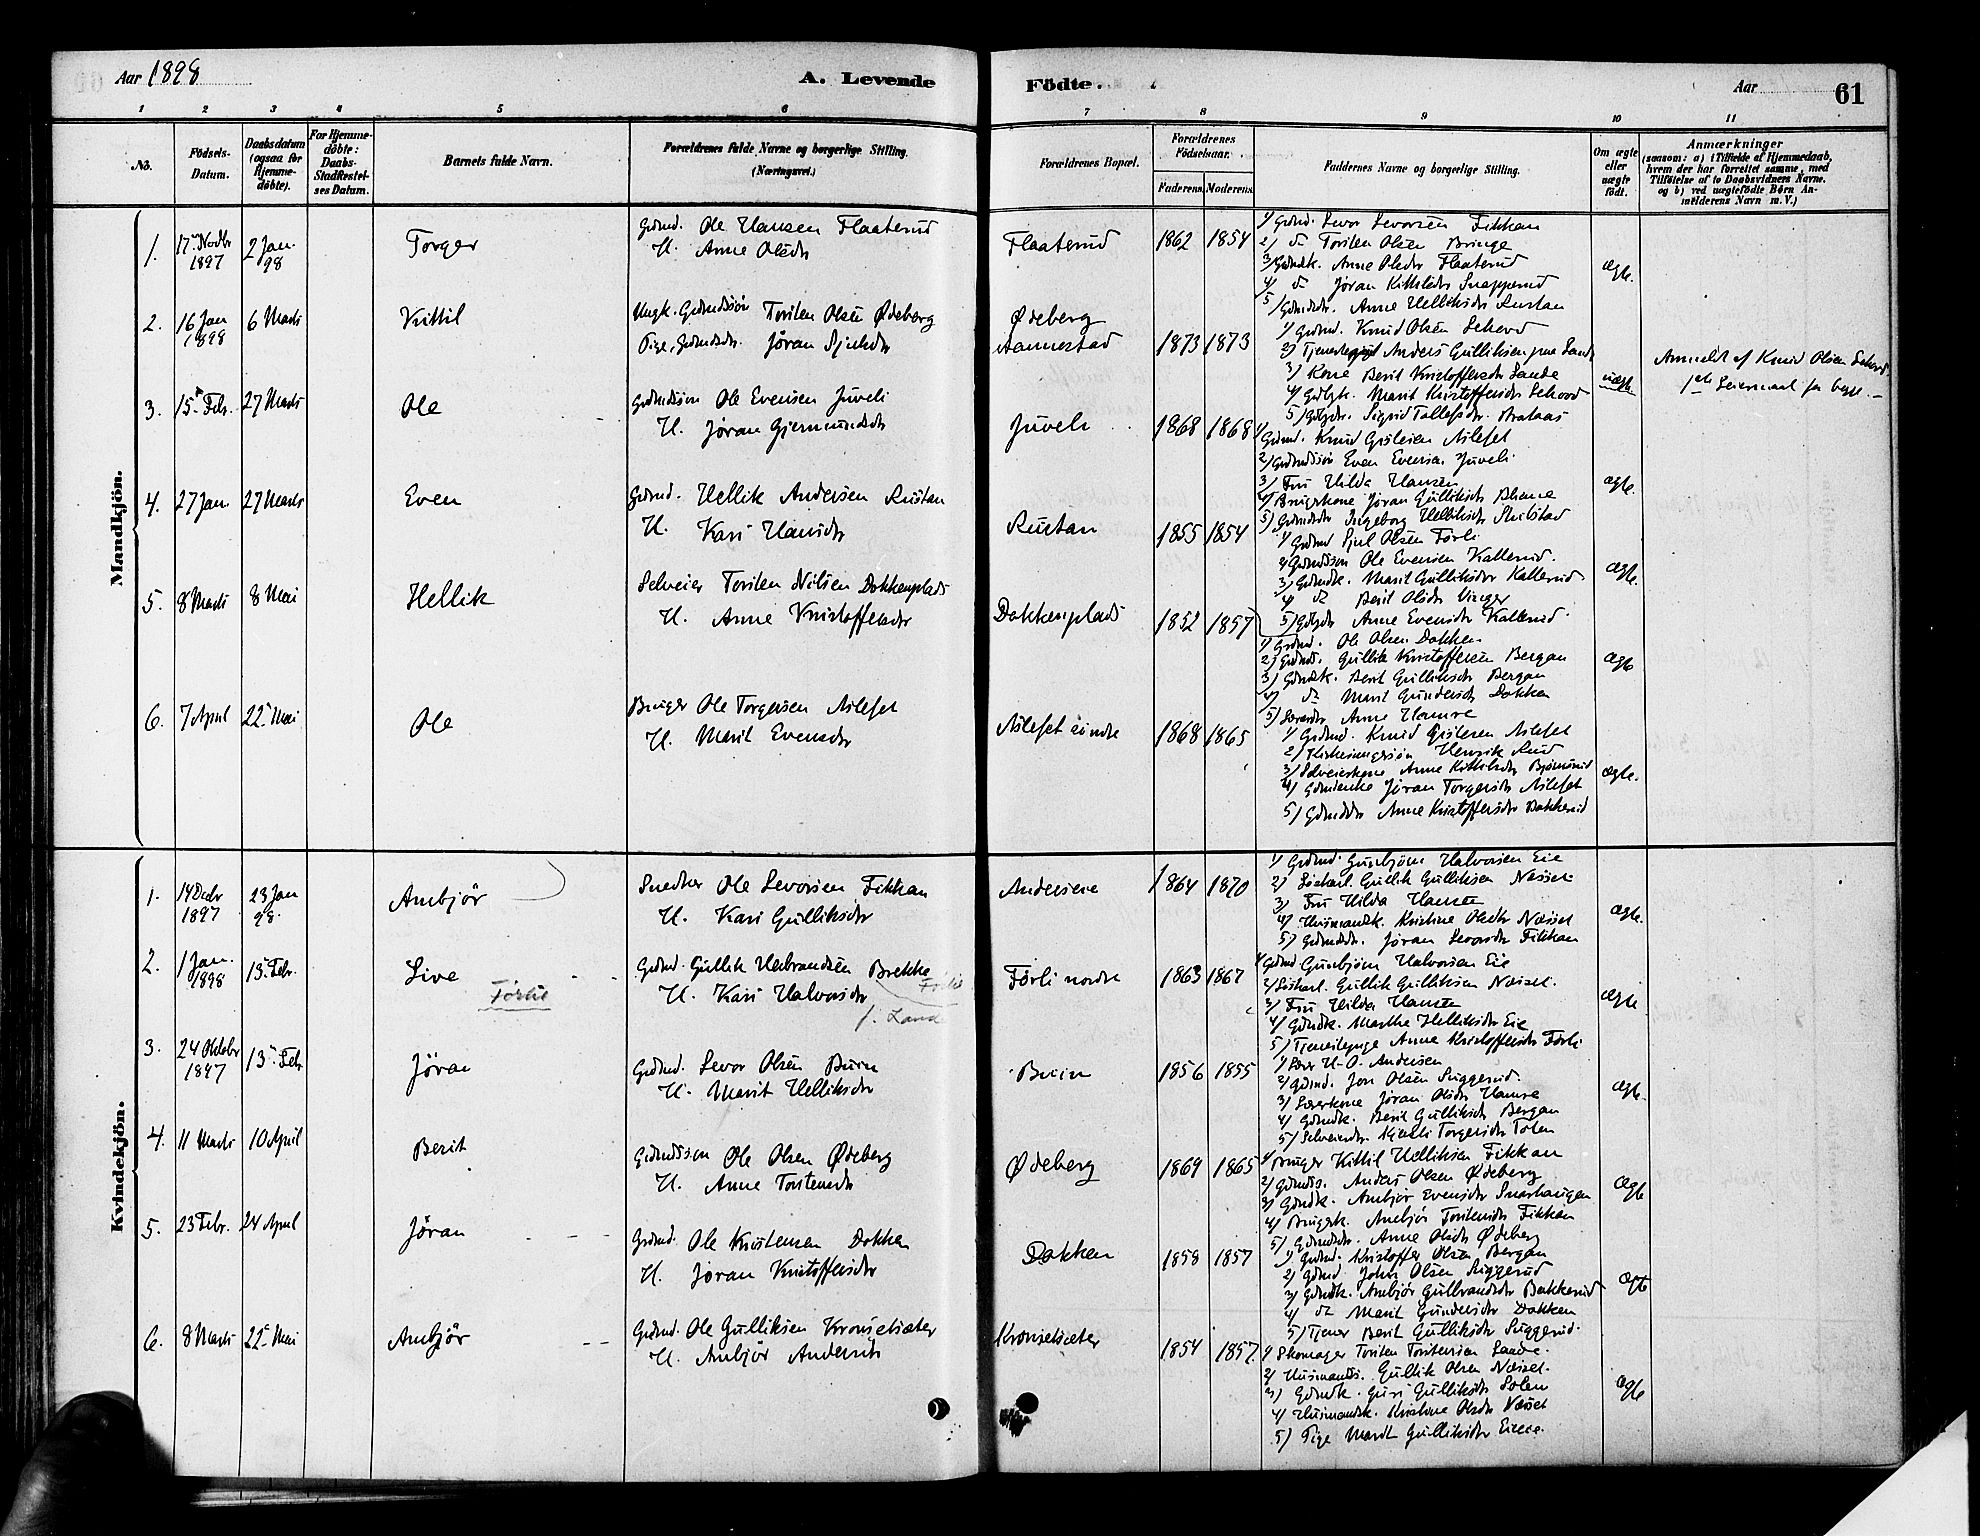 Aar 1898
A. Levende
Födte.
Aar
61
1 2 3 4 5 6 7 8 9 10 11
No.
Födsels-Datum.
Daabsdatum (ogsaa for Hjemmedöbte).
For Hjemmedöbte: Daabs-Stadfæstelses Datum.
Barnets fulde Navn.
Forældrenes fulde Navne og borgerlige Stilling. (Næringsvei.)
Forældrenes Bopæl.
Forældrenes Födselsaar.
Faderens. Moderens.
Faddernes Navne og borgerlige Stilling.
Om ægte eller uægte født.
Anmærkninger
(saasom: a) i Tilfælde af Hjemmedaab, hvem der har forrettet samme, med Tilföielse af to Daabsvidners Navne. og b) ved uægtefödte Börn Anmelderens Navn m. V.)
Mandkjön.
1. 17 Novbr 1897 2 Jan. 98 Torger
Grdmd. Ole Hansen Flaaterud
H. Anne Olsdr
Flaaterud 1862 1854
1) Grdmd. Levor Levorsen Fikkan
2) do Torsten Olsen Bringe
3) Grdmdk. Anne Olsdr Flaaterud
4) do Jøran Kittilsdr Snapperud
5) Grdmdsdr. Anne Helliksdr Rustan
ægte.
2. 16 Jan 1898 6 Marts Kittil
Ungk. Grdmdssön Torsten Olsen Ødeberg
Pige, Grdmdsdr. Jöran Sjulsdr
Ødeberg
Aannestad 1873 1873
1) Grdmd. Knud Olsen Lekord
2) Anders Gulliksen Lande
3) Kone Berit Kristoffersdr Lande
4) Marit Kristoffersdr
5) Sigrid Tollefsdr. Brataas
uægte
Anmeldt af Knud Olsen
1ste Leiermaal for begge.
3. 15 Febr. 27 Marts Ole
Grdmdssön Ole Evensen Juveli
H. Jøran Gjermundsdr
Juveli 1868 1868
1) Grdmd. Knud Gislesen Aslefet
2) Grdmdssön Even Evensen Juveli
3) Fru Hilda Hansen
4) Brugerkone Jøran Gulliksdr
5) Grdmdsdr Ingeborg Helliksdr
ægte.
4. 27 Jan. 27 Marts Even
Grdmd. Hellik Andersen Rustan
H. Kari Hansdr
Rustan 1855 1854
1) Grdmd Sjul Olsen Förli
2) Grdmdssön Ole Evensen Kallerud.
3) Grdmdk. Marit Gulliksdr Kallerud
4) do Berit Olsdr Vinger
5) Anne Evensdr Kallerud
ægte.
5. 8 Marts 8 Mai Hellik
Selveier Torsten Nilsen Dokkenplads
H. Anne Kristoffersdr
Dokkenplads 1852 1857
1) Grdmd. Ole Olsen Dokken
2) Grdmds. Gullik Kristoffersen Bergan
3) Grdmdk. Berit Gulliksdr Bergan
4) do Marit Gundersdr Dokken
5) Anne Hamre
ægte
6. 7 April 22 Mai Ole
Bruger Ole Torgersen Aslefet
H. Marit Evensdr
Aslefet söndre 1868 1865
1) Grdmd. Knud Gislesen Aslefet
2) Henrik Rud
3) Selveierkone Anne Kittilsdr Bjørnsrud
4) Grdmdenke Jøran Torgersdr Aslefet
5) Grdmdsdr Anne Kristoffersdr Bakkerud
ægte.
Kvindekjön.
1. 14 Decbr 1897 23 Jan 98. Ambjör
Snedker Ole Levorsen Fikkan
H. Kari Gulliksdr
Anderseie 1864 1870
1) Grdmd. Gunbjørn Halvorsen Eie
2) Löskarl Gullik Gulliksen Næsset
3) Fru Hilda Hansen
4) Husmandsk. Kristine Olsdr Næsset
5) Grdmdsdr. Jöran Levorsdr Fikkan
ægte.
2. 1 Jan. 1898 13 Febr. Live
Förlie
Grdmd. Gullik Herbrandsen Brekke
H. Kari Halvorsdr
Förli nordre 1863 1867
1) Grdmd Gunbjørn Halvorsen Eie
2) Löskarl. Gullik Gulliksen Næsset.
3) Fru Hilda Hansen
4) Grdmdk. Marthe Helliksdr Eie
5) Tjenestepige Anne Kristoffersdr Förli
ægte
3. 24 Oktober 1897 13 Febr Jöran
Grdmd. Levor Olsen Buin
H. Marit Helliksdr
Buin 1856 1855
1) H. O. Andersen
2) Grdmd. Jon Olsen Suggerud.
3) Jøran Olsdr Hamre
4) Grdmdk. Berit Gulliksdr Bergan
5) Selveierdr. Torgersdr Toten
ægte.
4. 11 Marts 10 April Berit
Grdmdssön Ole Olsen Ødeberg
H. Anne Torstensdr
Ødeberg 1869 1865
1) Bruger Kittil Helliksen Fikkan
2) Grdmds. Anders Olsen Ødeberg
3) Grdmdk. Ambjör Evensdr Snarhaugen
4) Brugerk. Ambjör Torstensdr Fikkan
5) Grdmdsdr. Anne Olsdr Ødeberg
ægte
5. 23 Febr. 24 April Jöran
Grdmd. Ole Kristensen Dokken
H. Jøran Kristoffersdr
Dokken 1858 1857
1) Grdmd. Kristoffer Olsen Bergan
2) Grdmd. John Olsen Suggerud
3) Grdmdk. Ambjör Gulbrandsdr Bakkerud
4) do Marit Gundersdr Dokken
5) Tjener Berit Gulliksdr Suggerud.
ægte
6. 8 Marts 22 Mai Ambjör
Grdmd. Ole Gulliksen Kronsetsæter
H. Ambjör Andersdr
Kronsetsæter 1854 1857.
1) Skomager Torsten Torstensen Lande.
2) Husmands. Gullik Olsen Næsset.
3) Grdmdk. Guri Gulliksdr Solem
4) Husmandsk. Kristine Olsdr Næsset
5) Pige Marit Gulliksdr
ægte